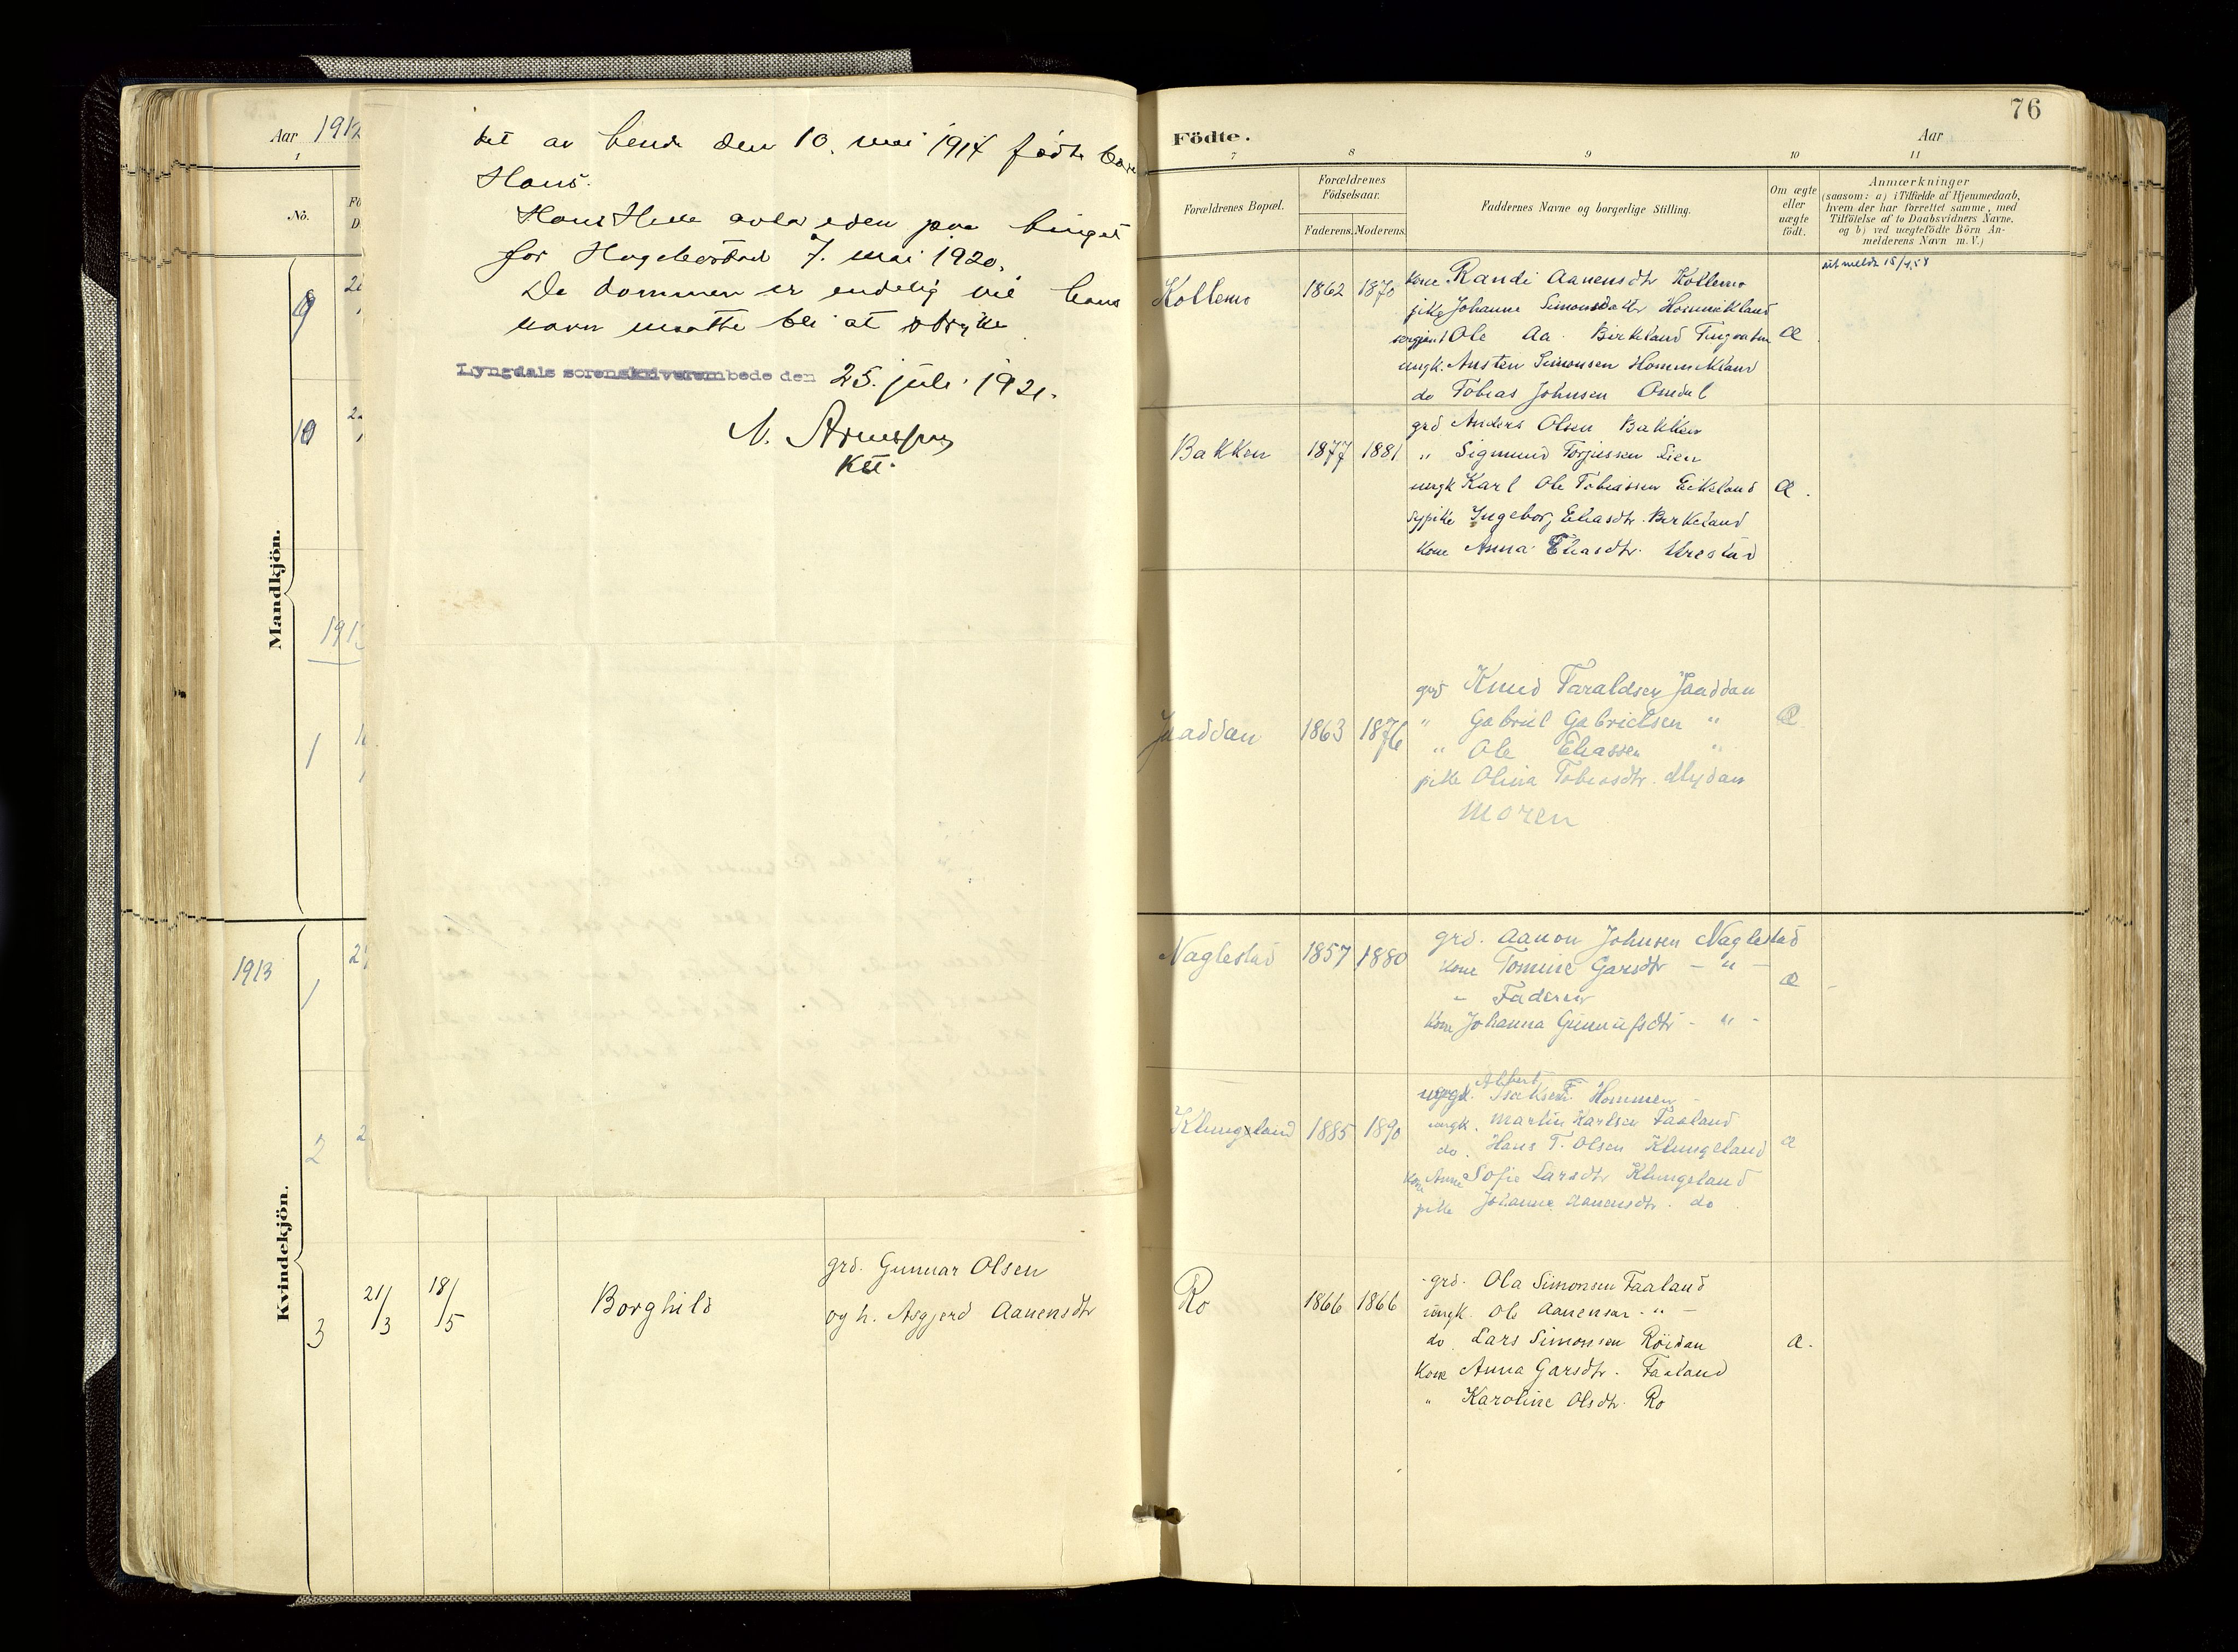 Aar 1912
1
No.
Mandkjön.
9
10
1912
1
1913
Kvindekjön.
1
2
det av hende den 10. mai 1914 födte barn
Hans.
Hans avla eden paa tinget
for Hægebostad 7. mai 1920.
Da dommen er endelig vil hans
navn maatte bli at stryke
Lyngdals sorenskriverembede den 25. juli 1921.
N.
Kst.
3 21/3 18/5 Borghild
grd. Gunnar Olsen
og h. Asgjerd Aanensdtr
76
Födte. Aar
7 8 9 10 11
Forældrenes Bopæl.
Forældrenes Födselsaar.
Faderens. Moderens.
Faddernes Navne og borgerlige Stilling.
Om ægte eller uægte födt.
Anmærkninger
(saasom: a) i Tilfælde af Hjemmedaab,
hvem der har forrettet samme, med
Tilföielse af to Daabsvidners Navne,
og b) ved uægtefödte Börn An-
melderens Navn m. V.)
utmeldt 15/4 58
Kollemo 1862 1870
kone Randi Aanensdtr Kollemo
pike Johanne Simonsdatter Hommekland
sergjant Ole Aa. Birkeland Tingvatn Æ
ungk. Austen Simonsen Hommekland
do Tobias Johnsen Omdal
Bakken 1877 1881
grd Anders Olsen Bakken
" Sigmund Torjussen Lien
ungk Karl Ole Tobiassen Eikeland Æ.
sypike Ingeborg Eliasdtr. Birkeland
kone Anna Eliasdtr. Urestad
Jaaddan 1863 1876
grd Knud Taraldsen Jaaddan
" Gabriel Gabrielsen " Æ
" Ole Eliassen "
pike Olina Tobiasdtr.
Moren
Naglestad 1857 1880
grd. Aanon Johnsen Naglestad
kone Tomine Garsdtr - " - Æ
- Faderen
kone Johanna Gunnufsdtr - " -
Klungeland 1885 1890
ungk. Albert Isaksen Hommen
ungk. Martin Karlsen Faaland
do. Hans T. Olsen Klungeland Æ
kone Anne Sofie Larsdtr Klungeland
pike Johanne Aanensdtr. do
Ro 1866 1866
grd. Ola Simonsen Faaland
ungk. Ole Aanensen - " -
do. Lars Simonsen Röidan Æ.
kone Anna Garsdtr. Faaland
" Karoline Olsdtr. Ro